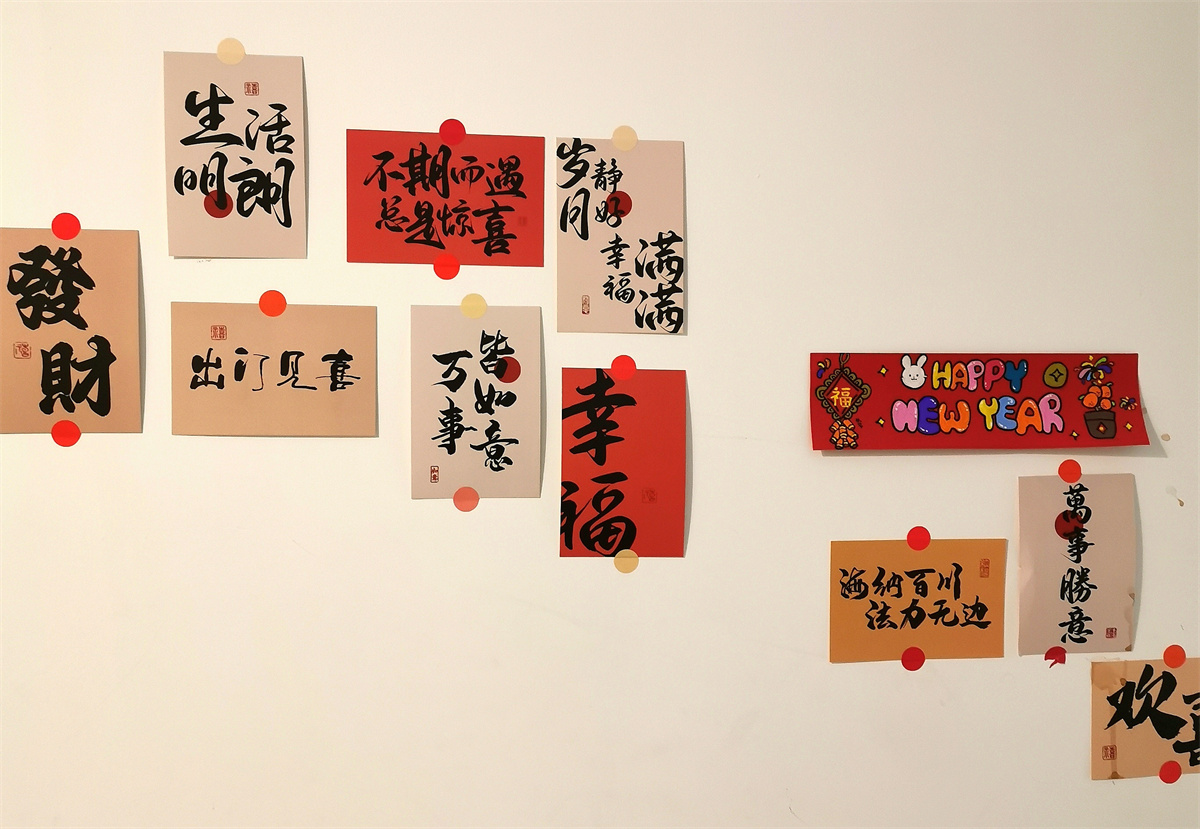 發
財
生活
明朗
出门见喜
不期而遇
总是惊喜
万事
皆如意
岁月
静好
幸福
满满
幸
福
福
HAPPY
NEW YEAR
海纳百川
法力无边
萬事勝意
欢喜